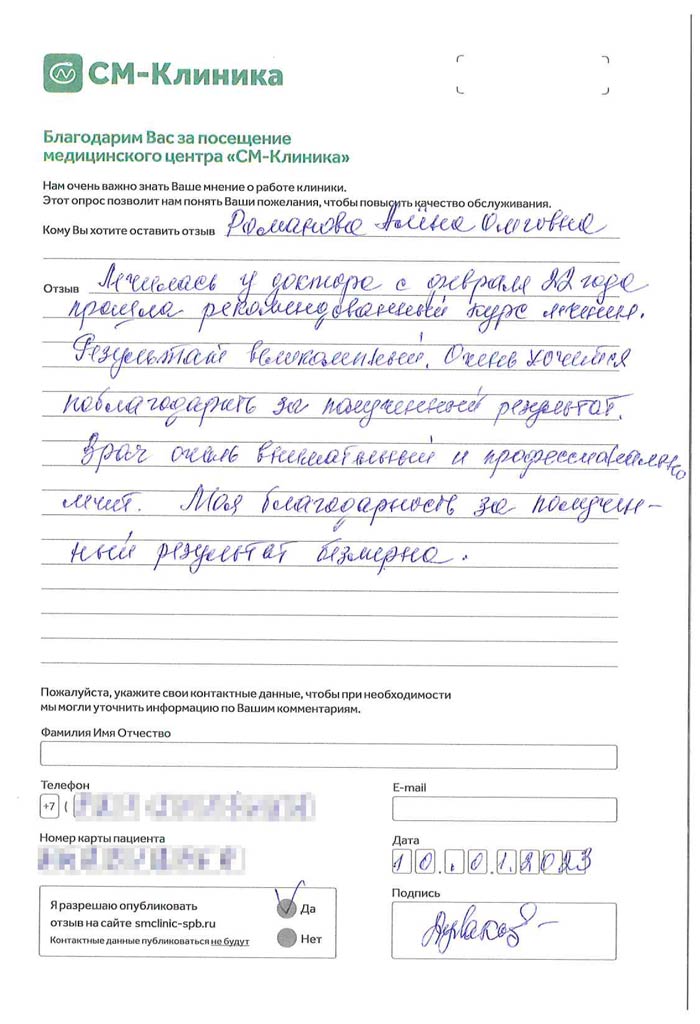 СМ-Клиника
Благодарим Вас за посещение
медицинского центра «СМ-Клиника»
Нам очень важно знать Ваше мнение о работе клиники.
Этот опрос позволит нам понять Ваши пожелания, чтобы повысить качество обслуживания.
Кому Вы хотите оставить отзыв Романова Алёна Олеговна
Отзыв Лечилась у доктора с февраля 22 года
прошла рекомендованный курс лечения.
Результат великолепный. Очень хочется
поблагодарить за полученный результат.
Врач очень внимательный и профессионально
лечит. Моя благодарность за получен-
ный результат безмерна.
Пожалуйста, укажите свои контактные данные, чтобы при необходимости
мы могли уточнить информацию по Вашим комментариям.
Фамилия Имя Отчество
Телефон
E-mail
+7 (
Номер карты пациента
Дата
10.01.2023
Я разрешаю опубликовать
отзыв на сайте smclinic-spb.ru
Контактные данные публиковаться не будут
Да
Нет
Подпись